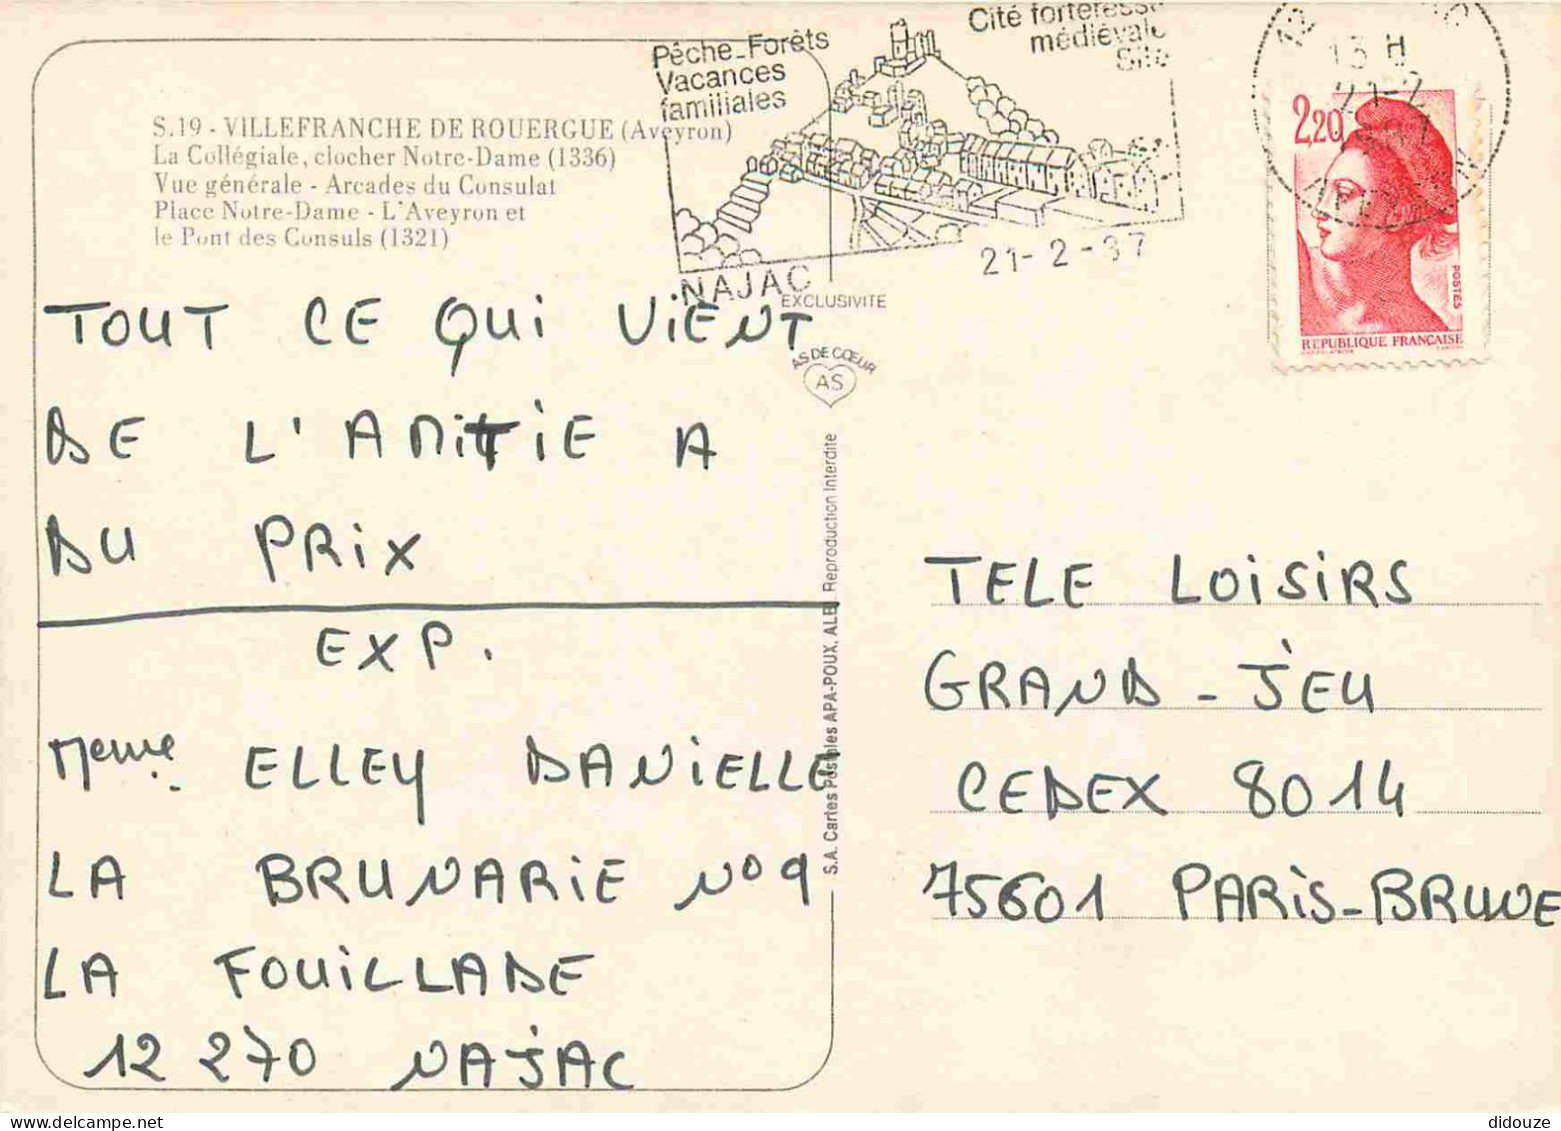 Pêche-Forêts
Vacances
familiales
Cité forteresse
médiévale
Site
NAJAC
21-2-87
13 H
21-2
AVEYRON
2,20
POSTES
REPUBLIQUE FRANÇAISE
S.19 - VILLEFRANCHE DE ROUERGUE (Aveyron)
La Collégiale, clocher Notre-Dame (1336)
Vue générale - Arcades du Consulat
Place Notre-Dame - L'Aveyron et
le Pont des Consuls (1321)
EXCLUSIVITE
AS DE CŒUR
AS
S.A. Cartes Postales APA-POUX, ALBI. Reproduction Interdite
TOUT CE QUI VIENT
DE L'AMITIE A
DU PRIX
EXP.
Meme. ELLEY DANIELLE
LA BRUNARIE N° 9
LA FOUILLADE
12 270 NAJAC
TELE LOISIRS
GRAND - JEU
CEDEX 8014
75601 PARIS-BRUNE
didouze